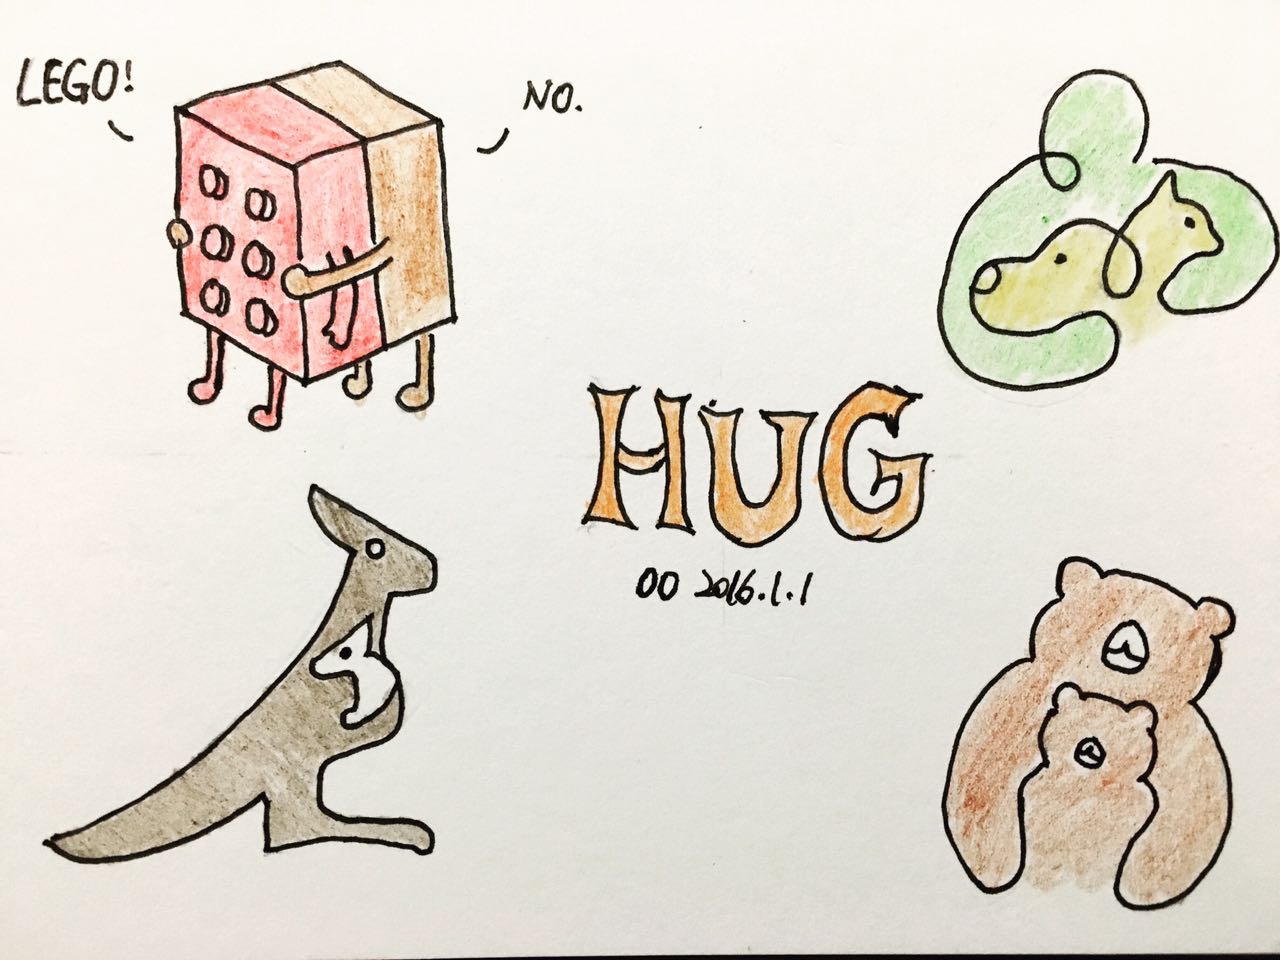 LEGO!
NO.
HUG
OO 2016.1.1